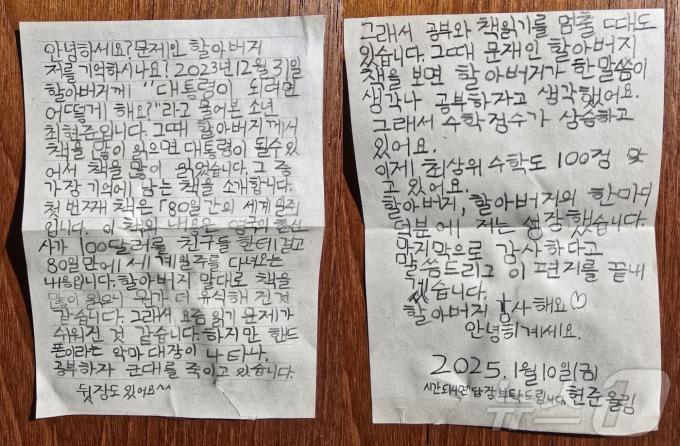 안녕하세요? 문제인 할아버지
저를 기억하시나요? 2023년 12월 31일
할아버지께 "대통령이 되려면
어떻게 해요?"라고 물어본 소년
최현준입니다. 그때 할아버지께서
책을 많이 읽으면 대통령이 될수있
어서 책을 많이 읽었습니다. 그 중
가장 기억에 남는 책을 소개합니다.
첫 번째 책은 「80일간의 세계 일주」
입니다. 이 책의 내용은 영국의
사가 100달러를 친구들 한테 걸고
80일만에 세계일주를 다녀오는
내용입니다. 할아버지 말대로 책을
많이 읽으니 뭔가 더 유식해 진 것
같습니다. 그래서 요즘 읽기 문제가
쉬워진 것 같습니다. 하지만 핸드
폰이라는 악마 대장이 나타나,
공부하자 군대를 죽이고 있습니다.
뒷장도 있어요^^
그래서 공부와 책읽기를 멈출 때도
있습니다. 그때 문재인 할아버지
책을 보면 할아버지가 한말씀이
생각나 공부하자고 생각했어요.
그래서 수학점수가 상승하고
있어요.
이제 최상위 수학도 100점 맞
고 있어요.
할아버지, 할아버지의 한마디
덕분에 저는 성장했습니다.
마지막으로 감사하다고
말씀드리고 이 편지를 끝내
겠습니다.
할아버지 감사해요♡
안녕히계세요.
2025. 1월 10일(금)
시간되시면 답장 부탁드립니다. 현준 올림
뉴스1